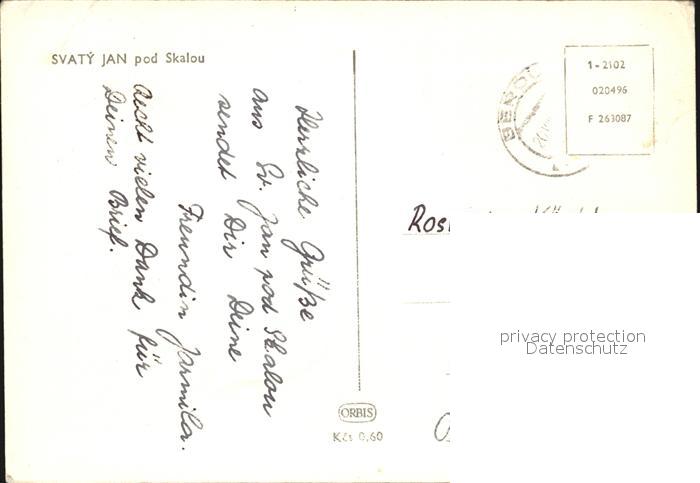 SVATÝ JAN pod Skalou
Herzliche Grüße
aus Sv. Jan pod Skalou
sendet Dir Deine
Freundin Jarmila.
Recht vielen Dank für
Deinen Brief.
ORBIS
Kčs 0,60
BEROU
1-2102
020496
F 263087
Ros
privacy protection
Datenschutz